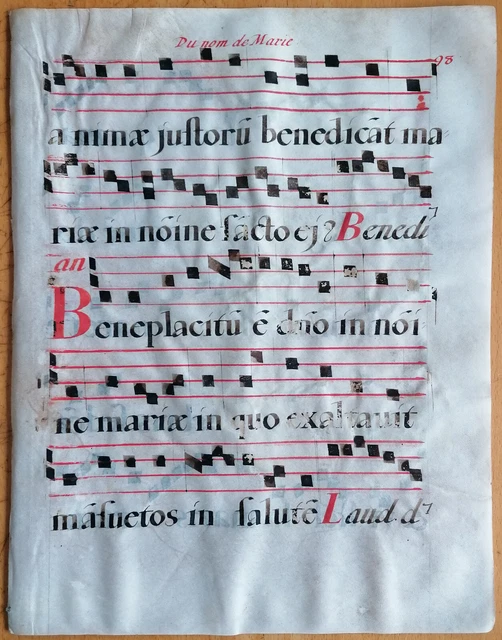 Du nom de Marie
98
a nimæ justorũ benedicãt ma
riæ in nõine sãcto ej? Benedi
an
Beneplacitũ ẽ dño in nõi
ne mariæ in quo exaltauit
mãsuetos in salutẽ Laud. d